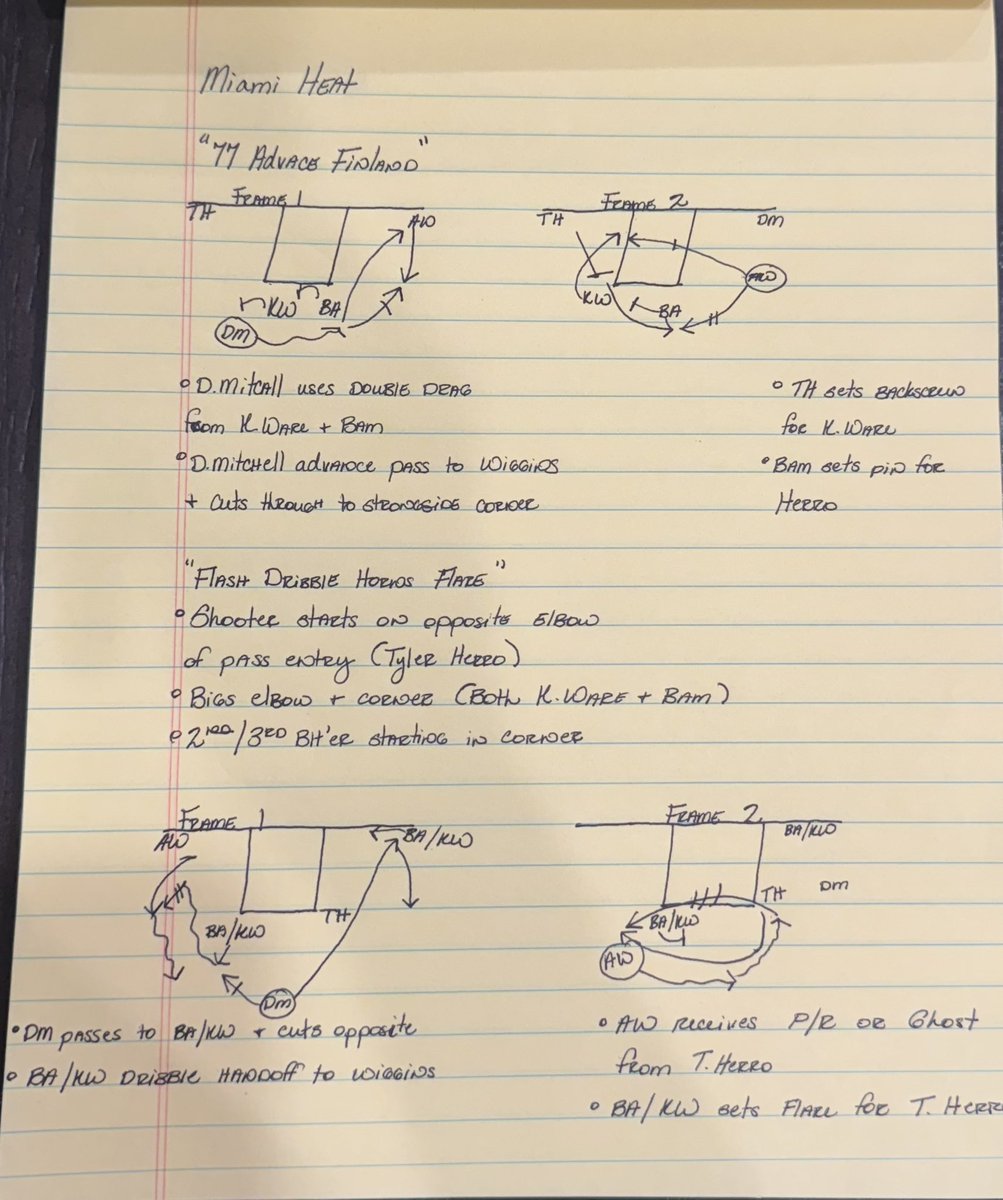 Miami HEAT
"77 Advace Finland"
Frame 1
TH
AW
KW
BA
DM
Frame 2
TH
DM
AW
KW
BA
° D. Mitcall uses Double Drag
from K. Ware + Bam
° D. Mitchell advance pass to Wiggins
+ cuts through to strongside corner
° TH sets Backscreen
for K. Ware
° Bam sets pin for
Herro
"Flash Dribble Horns Flare"
° Shooter starts on opposite Elbow
of pass entry (Tyler Herro)
° Bigs elbow + corner (Both K. Ware + Bam)
° 2nd/3rd BH'er starting in corner
Frame 1
AW
BA/KW
BA/KW
TH
DM
Frame 2
BA/KW
TH
DM
BA/KW
AW
• DM passes to BA/KW + cuts opposite
° BA/KW Dribble Handoff to Wiggins
° AW receives P/R or Ghost
from T. Herro
° BA/KW sets Flare for T. Herro